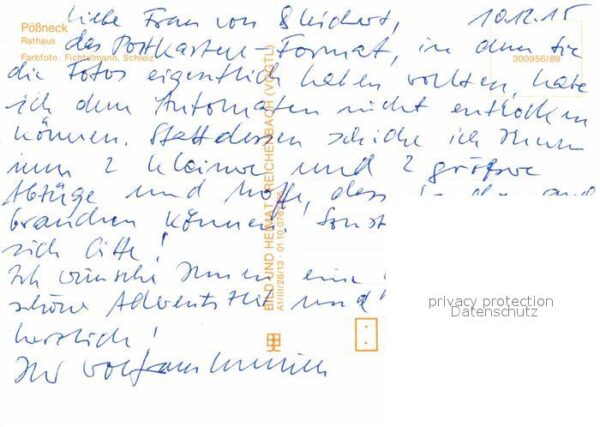 Liebe Frau von Bleichert, 10.12.15
Pößneck
Rathaus
Farbfoto: Fichtelmann, Schleiz
300956/89
das Postkarten-Format, in dem Sie
die Fotos eigentlich haben wollten, habe
ich dem Automaten nicht entlocken
können. Stattdessen schicke ich Ihnen
nun 2 kleine und 2 größere
Abzüge und hoffe, dass
brauchen können! Sonst
sich bitte!
Ich wünsche Ihnen eine
schöne Adventszeit und
herzlich!
Ihr Wolfgang
BILD UND HEIMAT REICHENBACH (VOGTL)
A1/III/26/13
privacy protection
Datenschutz